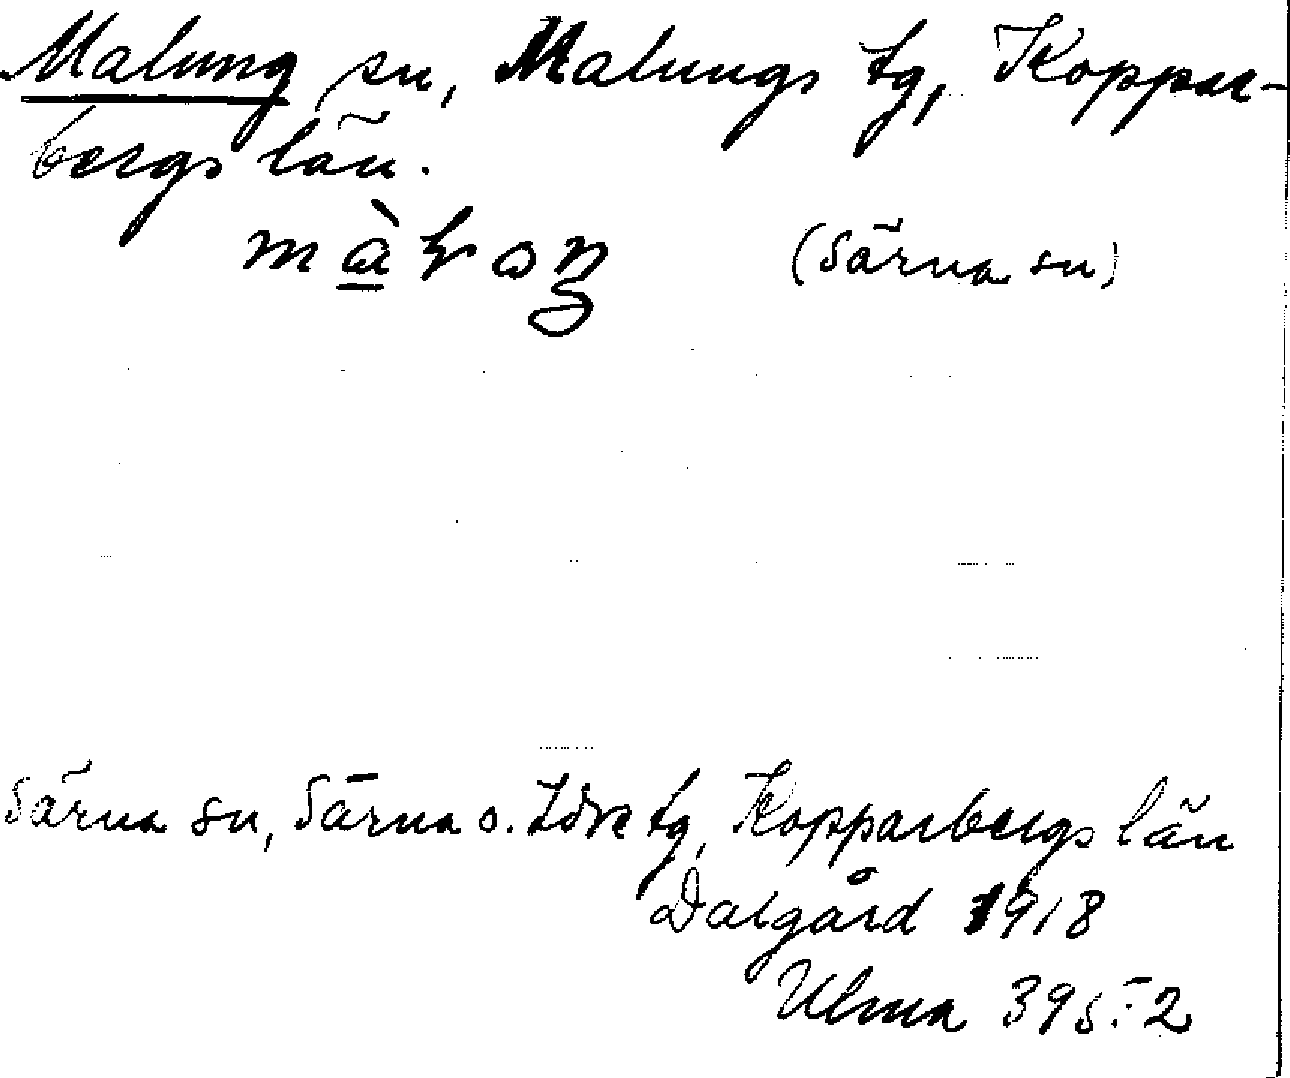 Malung sn, Malungs tg, Koppar-
bergs län.
(Särna sn)
Särna sn, Särna o. Idre tg, Kopparbergs län
Dalgård 1918
Ulma 39 s. 2